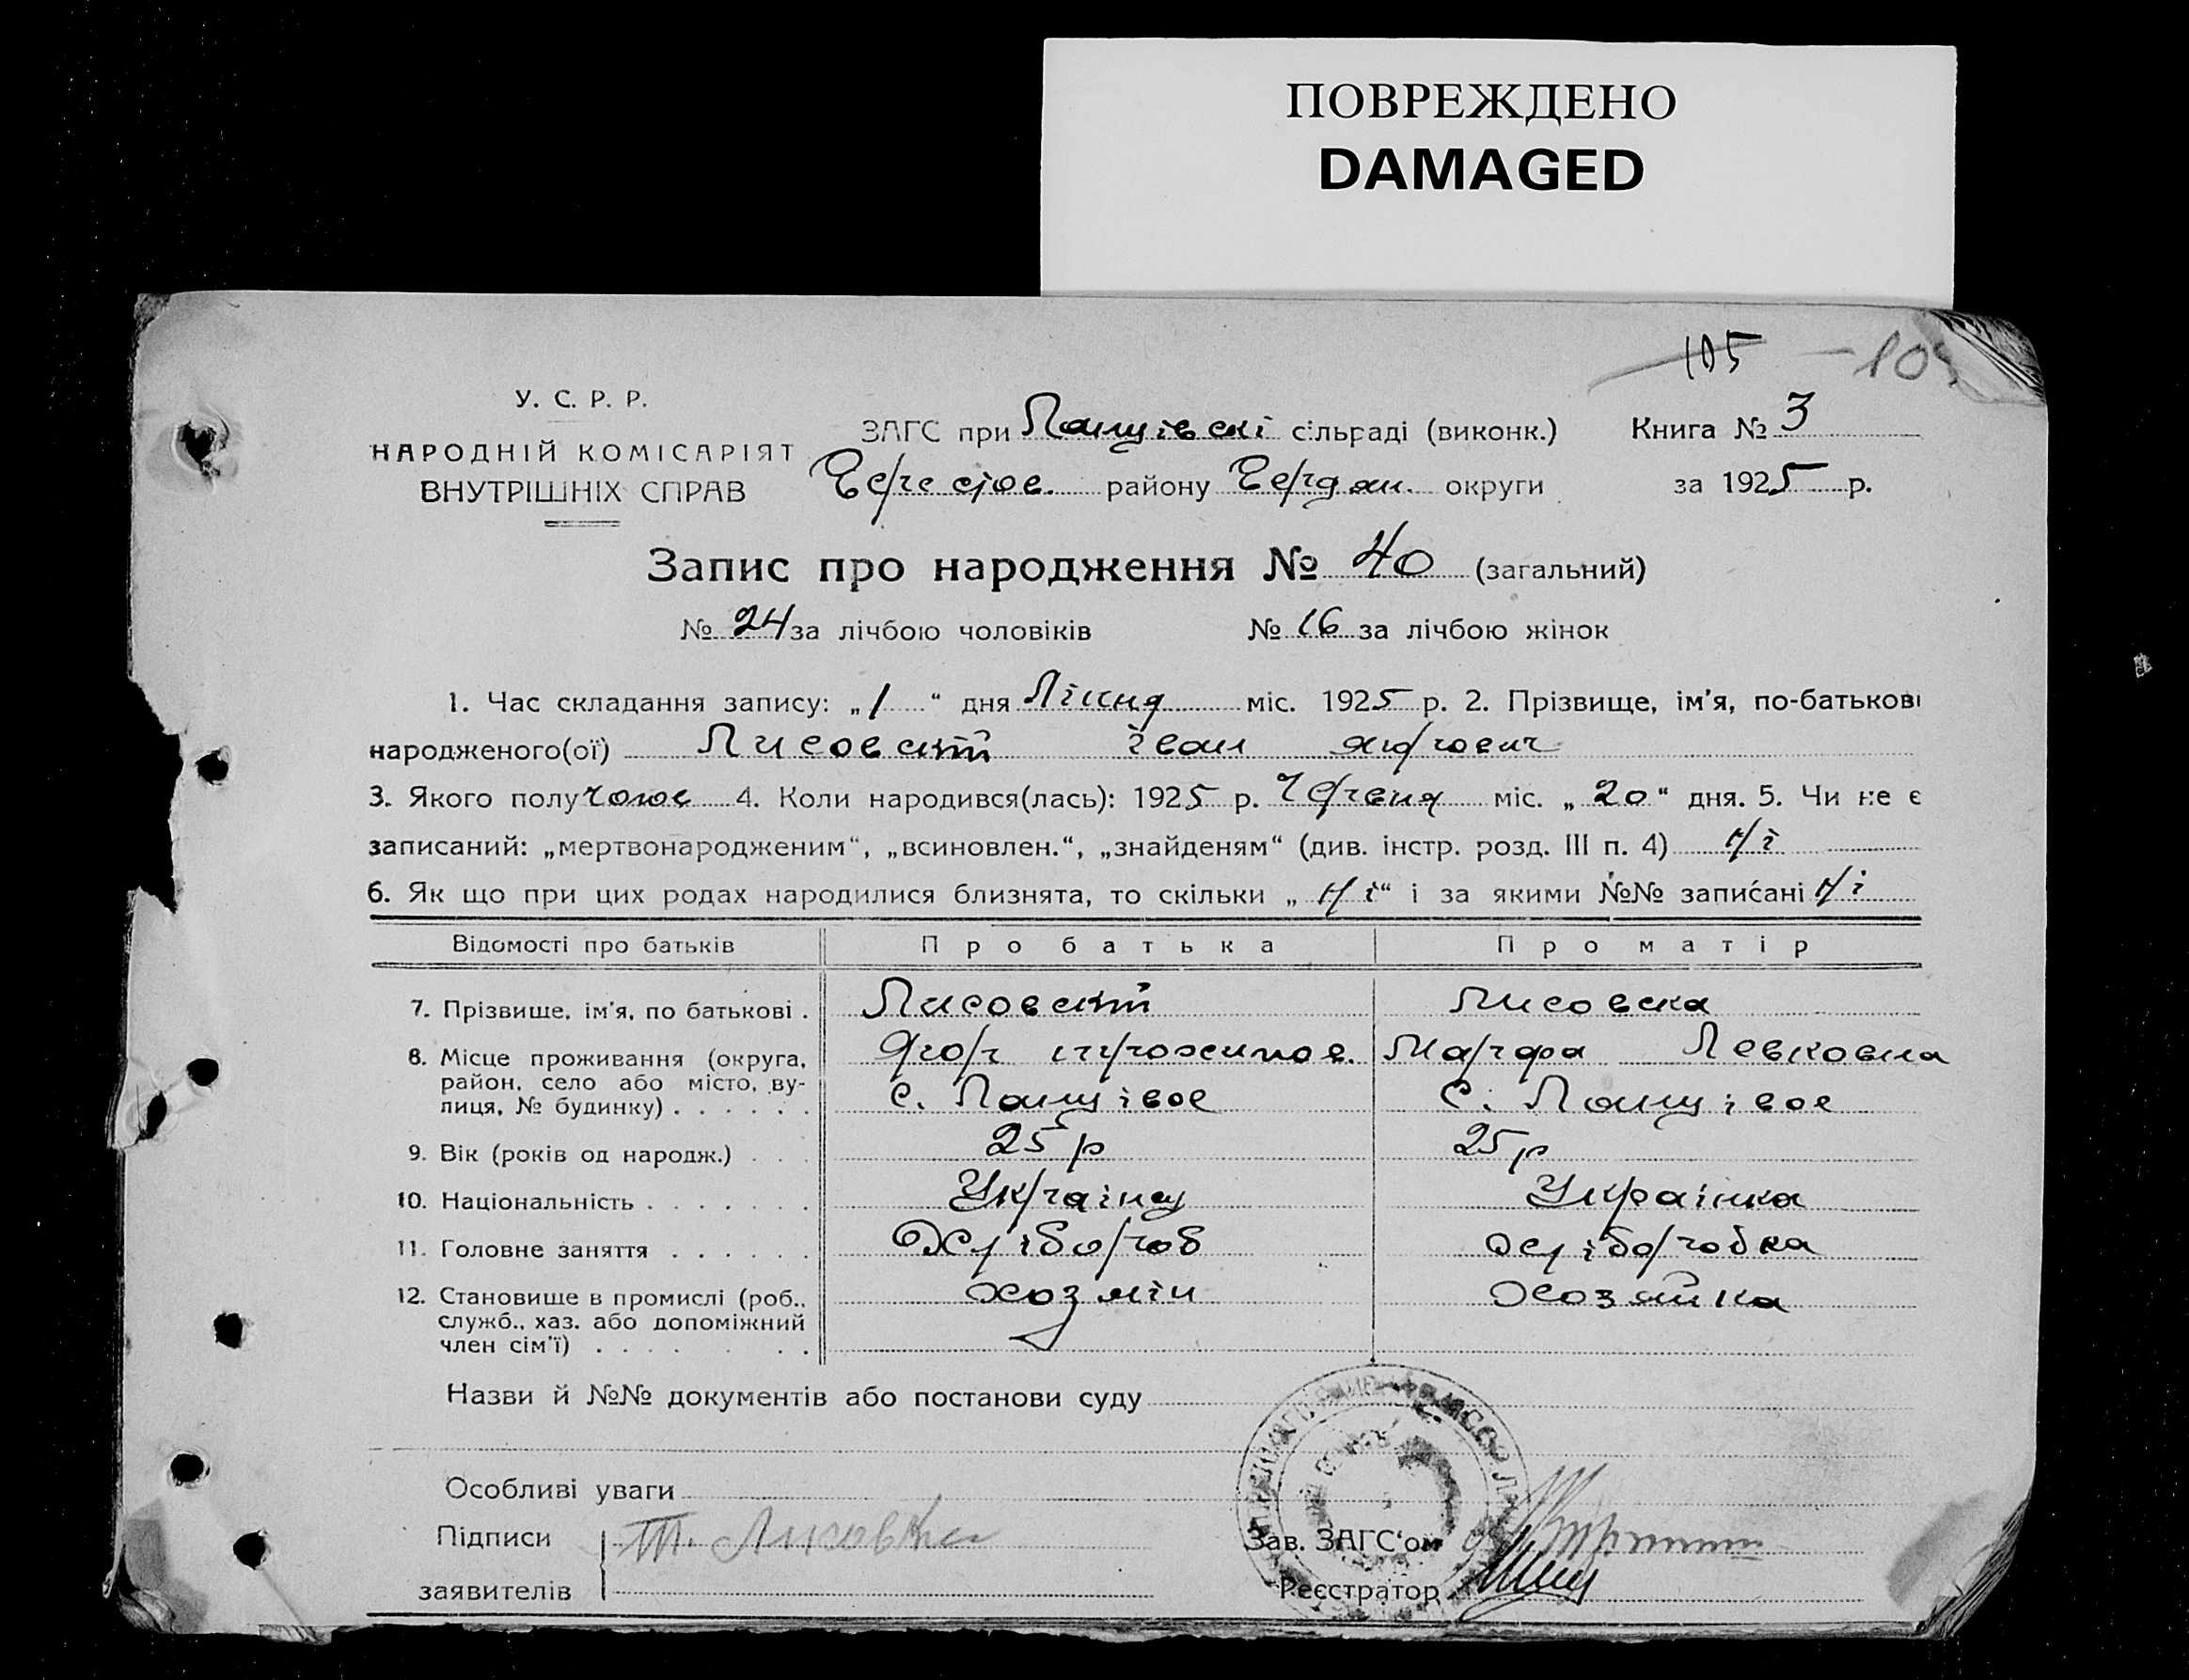 ПОВРЕЖДЕНО
DAMAGED
105
У. С. Р. Р.
НАРОДНІЙ КОМІСАРІЯТ
ВНУТРІШНІХ СПРАВ
ЗАГС при Лащівскі сільраді (виконк.) Книга № 3
району округи за 1925 р.
Запис про народження № 40 (загальний)
№ 24 за лічбою чоловіків № 16 за лічбою жінок
1. Час складання запису: „1“ дня Липня міс. 1925 р. 2. Прізвище, ім'я, по-батькові
народженого(ої) Лисовский Іван
3. Якого полу чолов 4. Коли народився(лась): 1925 р. Червня міс. „20“ дня. 5. Чи не є
записаний: „мертвонародженим“, „всиновлен.“, „знайденям“ (див. інстр. розд. III п. 4) Ні
6. Як що при цих родах народилися близнята, то скільки „Ні“ і за якими №№ записані Ні
Відомості про батьків Про батька Про матір
7. Прізвище, ім'я, по батькові . Лисовский Лисовска
8. Місце проживання (округа, Марфа Левковна
район, село або місто, ву-
лиця, № будинку) . . . . . . с. Лащівое С. Лащівое
9. Вік (років од народж.) . . . 25 р 25 р
10. Національність . . . . . . . Українц Українка
11. Головне заняття . . . . . . Хлібороб хліборобка
12. Становище в промислі (роб., хозяін Хозяйка
служб., хаз. або допоміжний
член сім'ї) . . . . . .
Назви й №№ документів або постанови суду
Особливі уваги
Підписи
заявителів
Зав. ЗАГС'ом
Реєстратор